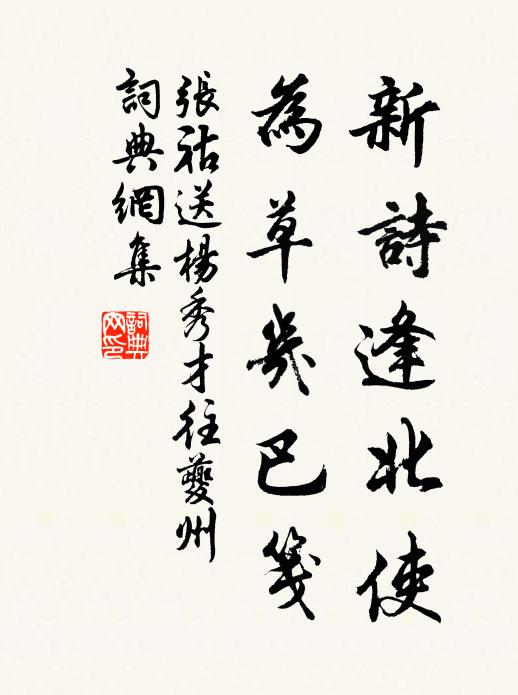 新詩逢北使
為草幾巴箋
張祜送楊秀才往夔州
詞典網集
詞典網印